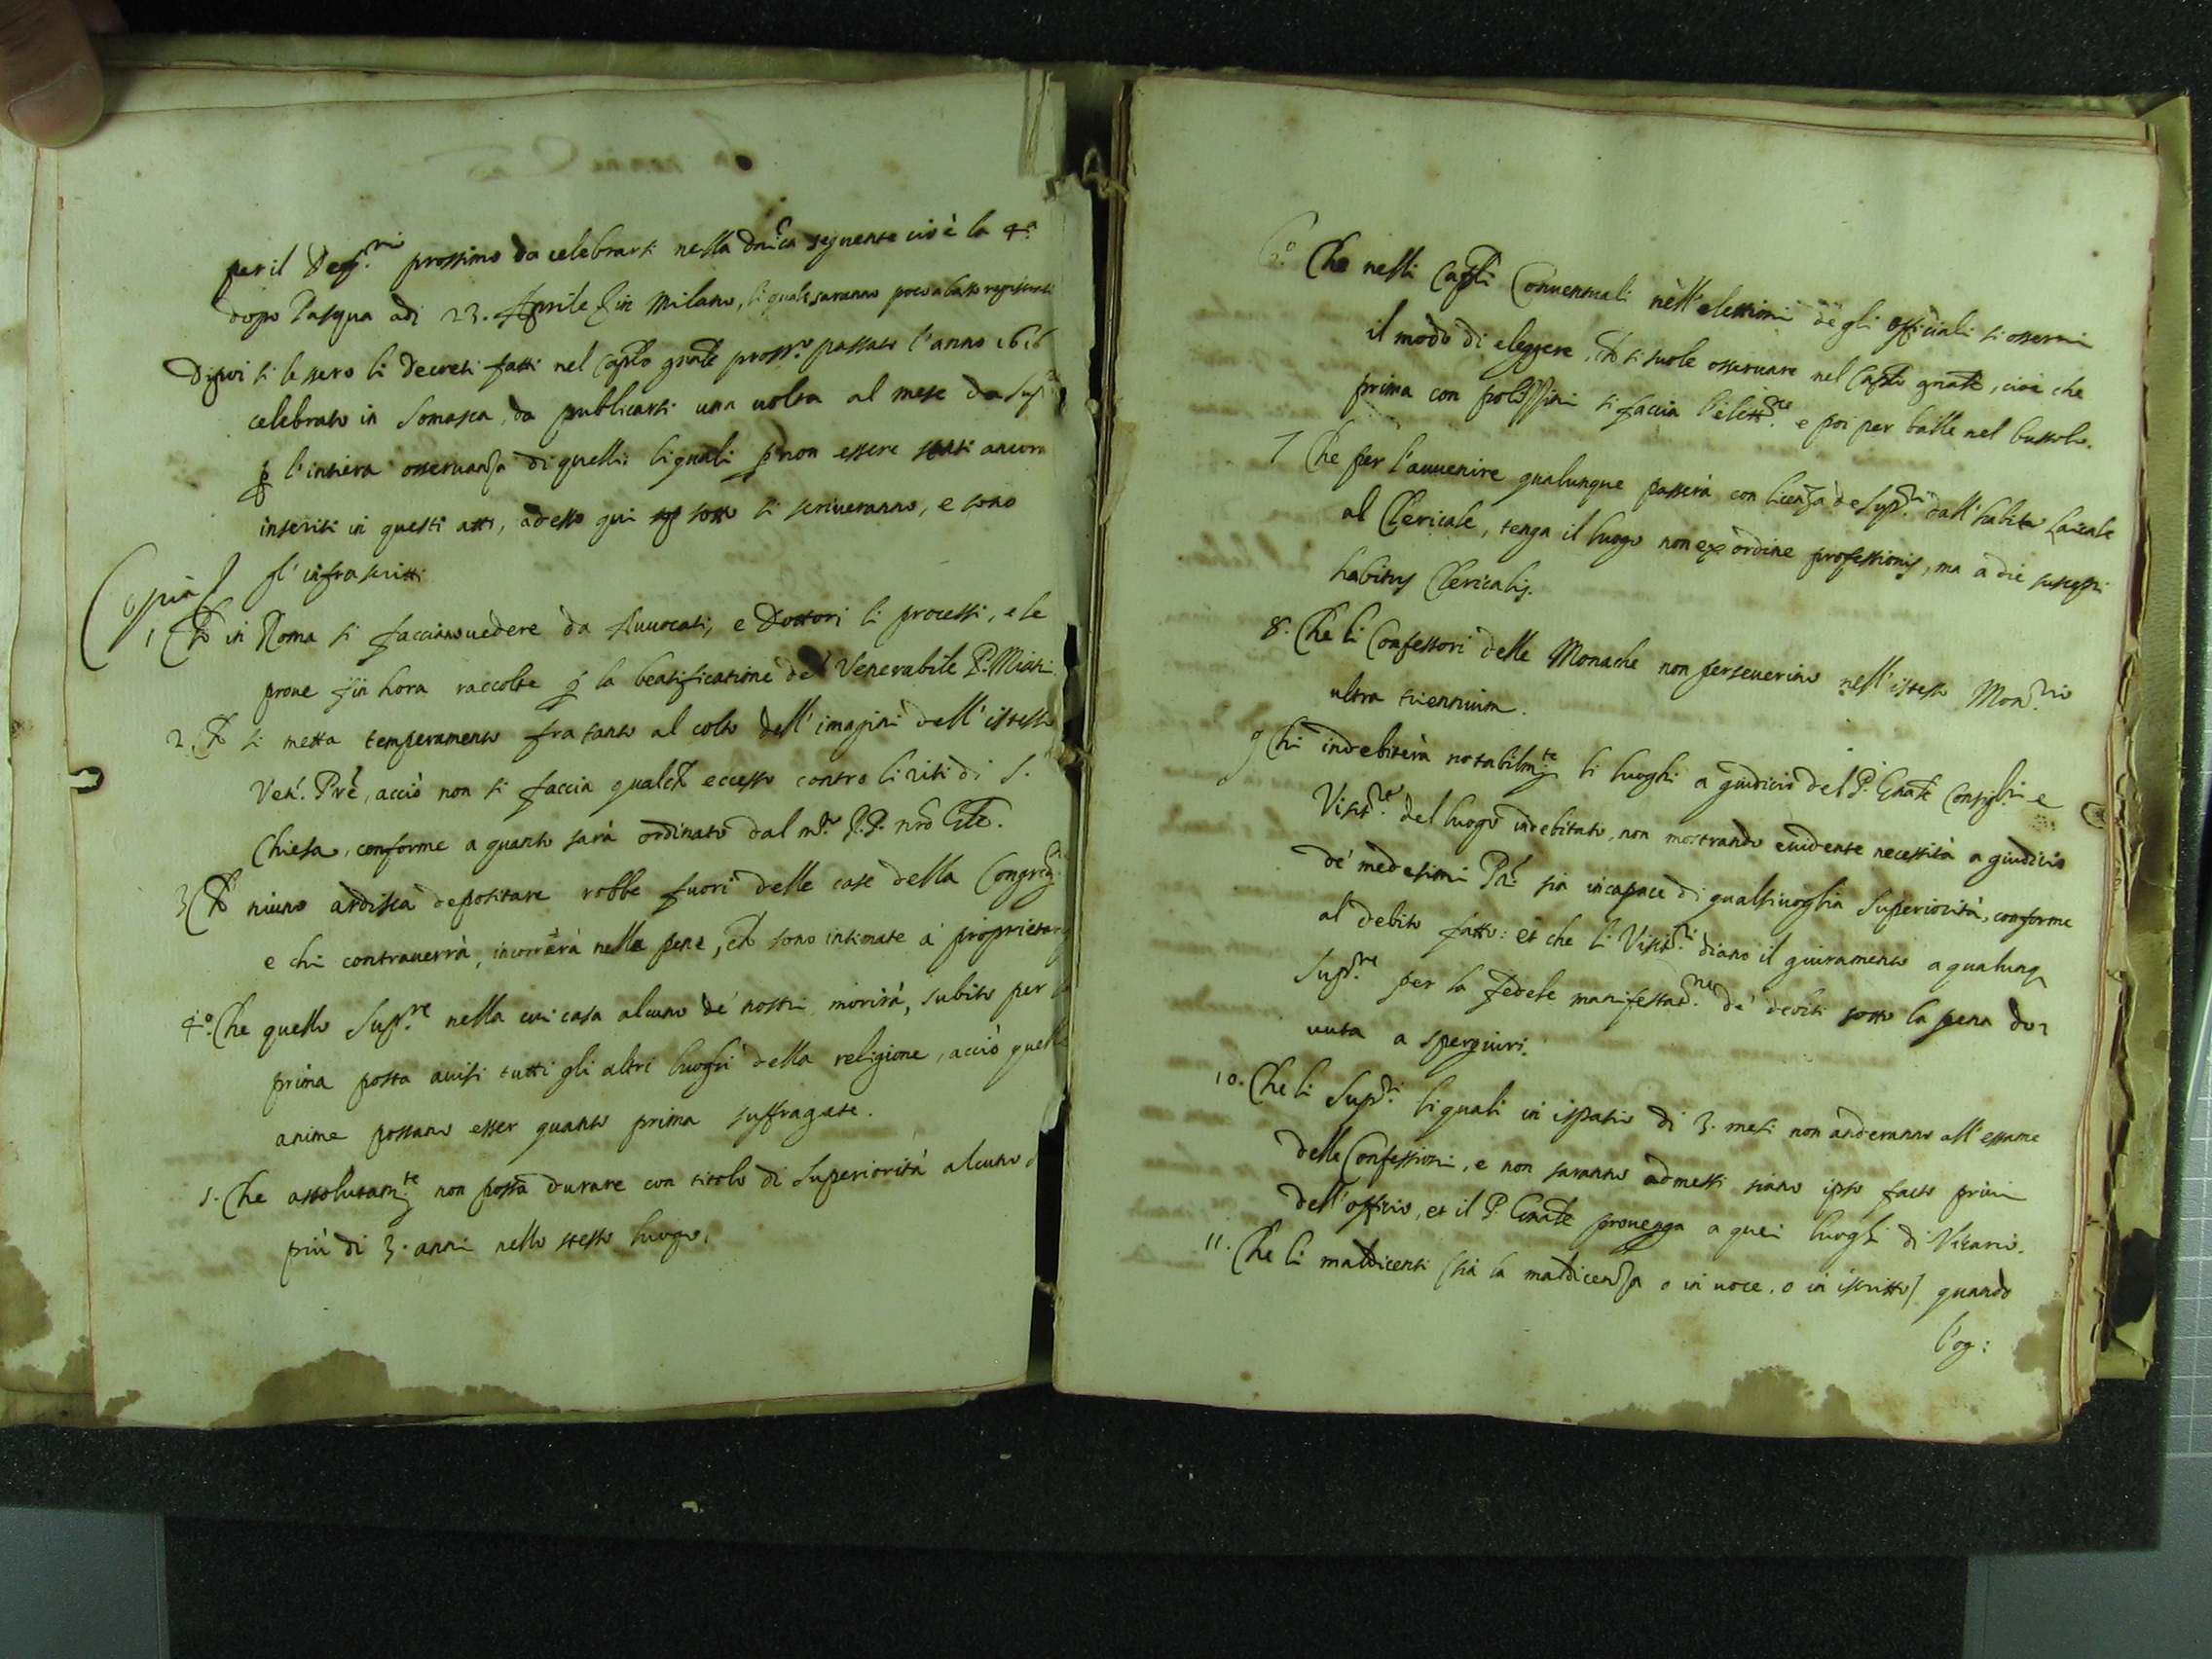 per il Deff.rio prossimo da celebrarsi nella dnica seguente cioè la 4a
dopo Pasqua adi 23. Aprile in Milano, li quale saranno poco a basso registrati
Dipoi si lessero li decreti fatti nel caplo gnale pross.o passato l'anno 1616
celebrato in Somasca, da publicarsi una uolta al mese da Sup.ri
p l'intiera osseruanza di quelli: li quali p non essere stati ancora
inseriti in questi atti, adesso qui sotto si scriueranno, e sono
gl'infrascritti
Copia
1 Ch in Roma si facciano uedere da Auuocati, e Dottori li processi, e le
proue fin hora raccolte p la beatificatione del Venerabile P. Miani.
2. Ch si metta temperamento fra tanto al colto dell'imagini dell'istesso
Ven. Pre, acciò non si faccia qualch eccesso contro li riti di S.
Chiesa, conforme a quanto sarà ordinato dal m. P.P. nro Gnle.
3 Ch niuno ardisca depositare robbe fuori delle case della Congreg.ne
e chi contrauerrà, incorrerà nelle pene, ch sono intimate a' proprietarij
4o. Che quello Sup.re nella cui casa alcuno de' nostri morirà, subito per la
prima posta auisi tutti gli altri luoghi della religione, acciò quelle
anime possano esser quanto prima suffragate.
5. Che assolutam.te non possa durare con titolo di Superiorità alcuno
più di 3. anni nello stesso luogo.
6o. Che nelli Capli Conuentuali nell'elettioni degli officiali si osserui
il modo di eleggere, ch si suole osseruare nel Caplo gnale, cioè che
prima con polizzini si faccia l'elett.ne e poi per balle nel bussolo.
7 Che per l'auuenire qualunque passerà con licenza de Sup.ri dall'habito Laicale
al Clericale, tenga il luogo non ex ordine professionis, ma a die suscepti
habitus Clericalis.
8. Che li Confessori delle Monache non perseuerino nell'istesso Mon.rio
ultra triennium.
9 Chi indebiterà notabilm.te li luoghi a giudicio del P. Gnale Consigl.ri e
Visit.re del luogo indebitato, non mostrando euidente necessità a giudicio
de' medesimi PP. sia incapace di qualsiuoglia Superiorità, conforme
al debito fatto: et che li Visit.ri diano il giuramento a qualunq
Sup.re per la fedele manifestat.ne de' debiti sotto la pena do-
uuta a spergiuri.
10. Che li Sup.ri li quali in ispatio di 3. mesi non anderanno all'essame
delle Confessioni, e non saranno admessi siano ipso facto priui
dell'officio, et il P. Gnale prouegga a quei luoghi di Vicario.
11. Che li maldicenti (sia la maldicenza o in uoce, o in iscritto) quando
l'og: